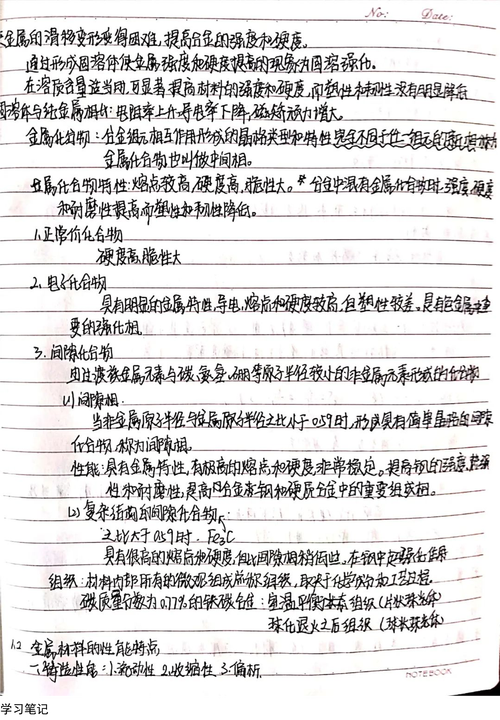 No:    Date:
金属的滑移变形变得困难,提高合金的强度和硬度。
通过形成固溶体使金属强度和硬度提高的现象为固溶强化。
在溶质含量适当时,可显著提高材料的强度和硬度,而塑性和韧性没有明显降低
固溶体与纯金属相比:电阻率上升,导电率下降,磁矫顽力增大。
金属化合物:合金组元相互作用形成的晶格类型和特性完全不同于任一组元的
金属化合物也叫做中间相。
金属化合物特性:熔点较高,硬度高,脆性大。*合金中含有金属化合物时,强度,硬度
和耐磨性提高,而塑性和韧性降低。
1.正常价化合物
硬度高,脆性大
2.电子化合物
具有明显的金属特性,导电,熔点和硬度较高,但塑性较差,具有色金属中重
要的强化相.
3.间隙化合物
由过渡族金属元素与碳、氮、氢、硼等原子半径较小的非金属元素形成的化合物
(1)间隙相.
当非金属原子半径与金属原子半径之比小于0.59时,形成具有简单晶格的间隙
化合物,称为间隙相.
性能:具有金属特性,有极高的熔点和硬度,非常稳定。提高钢的强度,热强
性和耐磨性,是高合金工具钢和硬质合金中的重要组成相.
(2)复杂结构的间隙化合物
之比大于0.59时. Fe3C
具有很高的熔点和硬度,但比间隙相稍低些,在钢中起强化作用
组织:材料内部所有的微观组成总称组织,取决于化学成分和工艺过程
碳质量分数为0.77%的铁碳合金:室温平衡状态组织(片状珠光体
球化退火之后组织(球状珠光体
1.2 金属材料的性能特点
一.铸造性能:1.流动性 2.收缩性 3.偏析.
NOTEBOOK
学习笔记